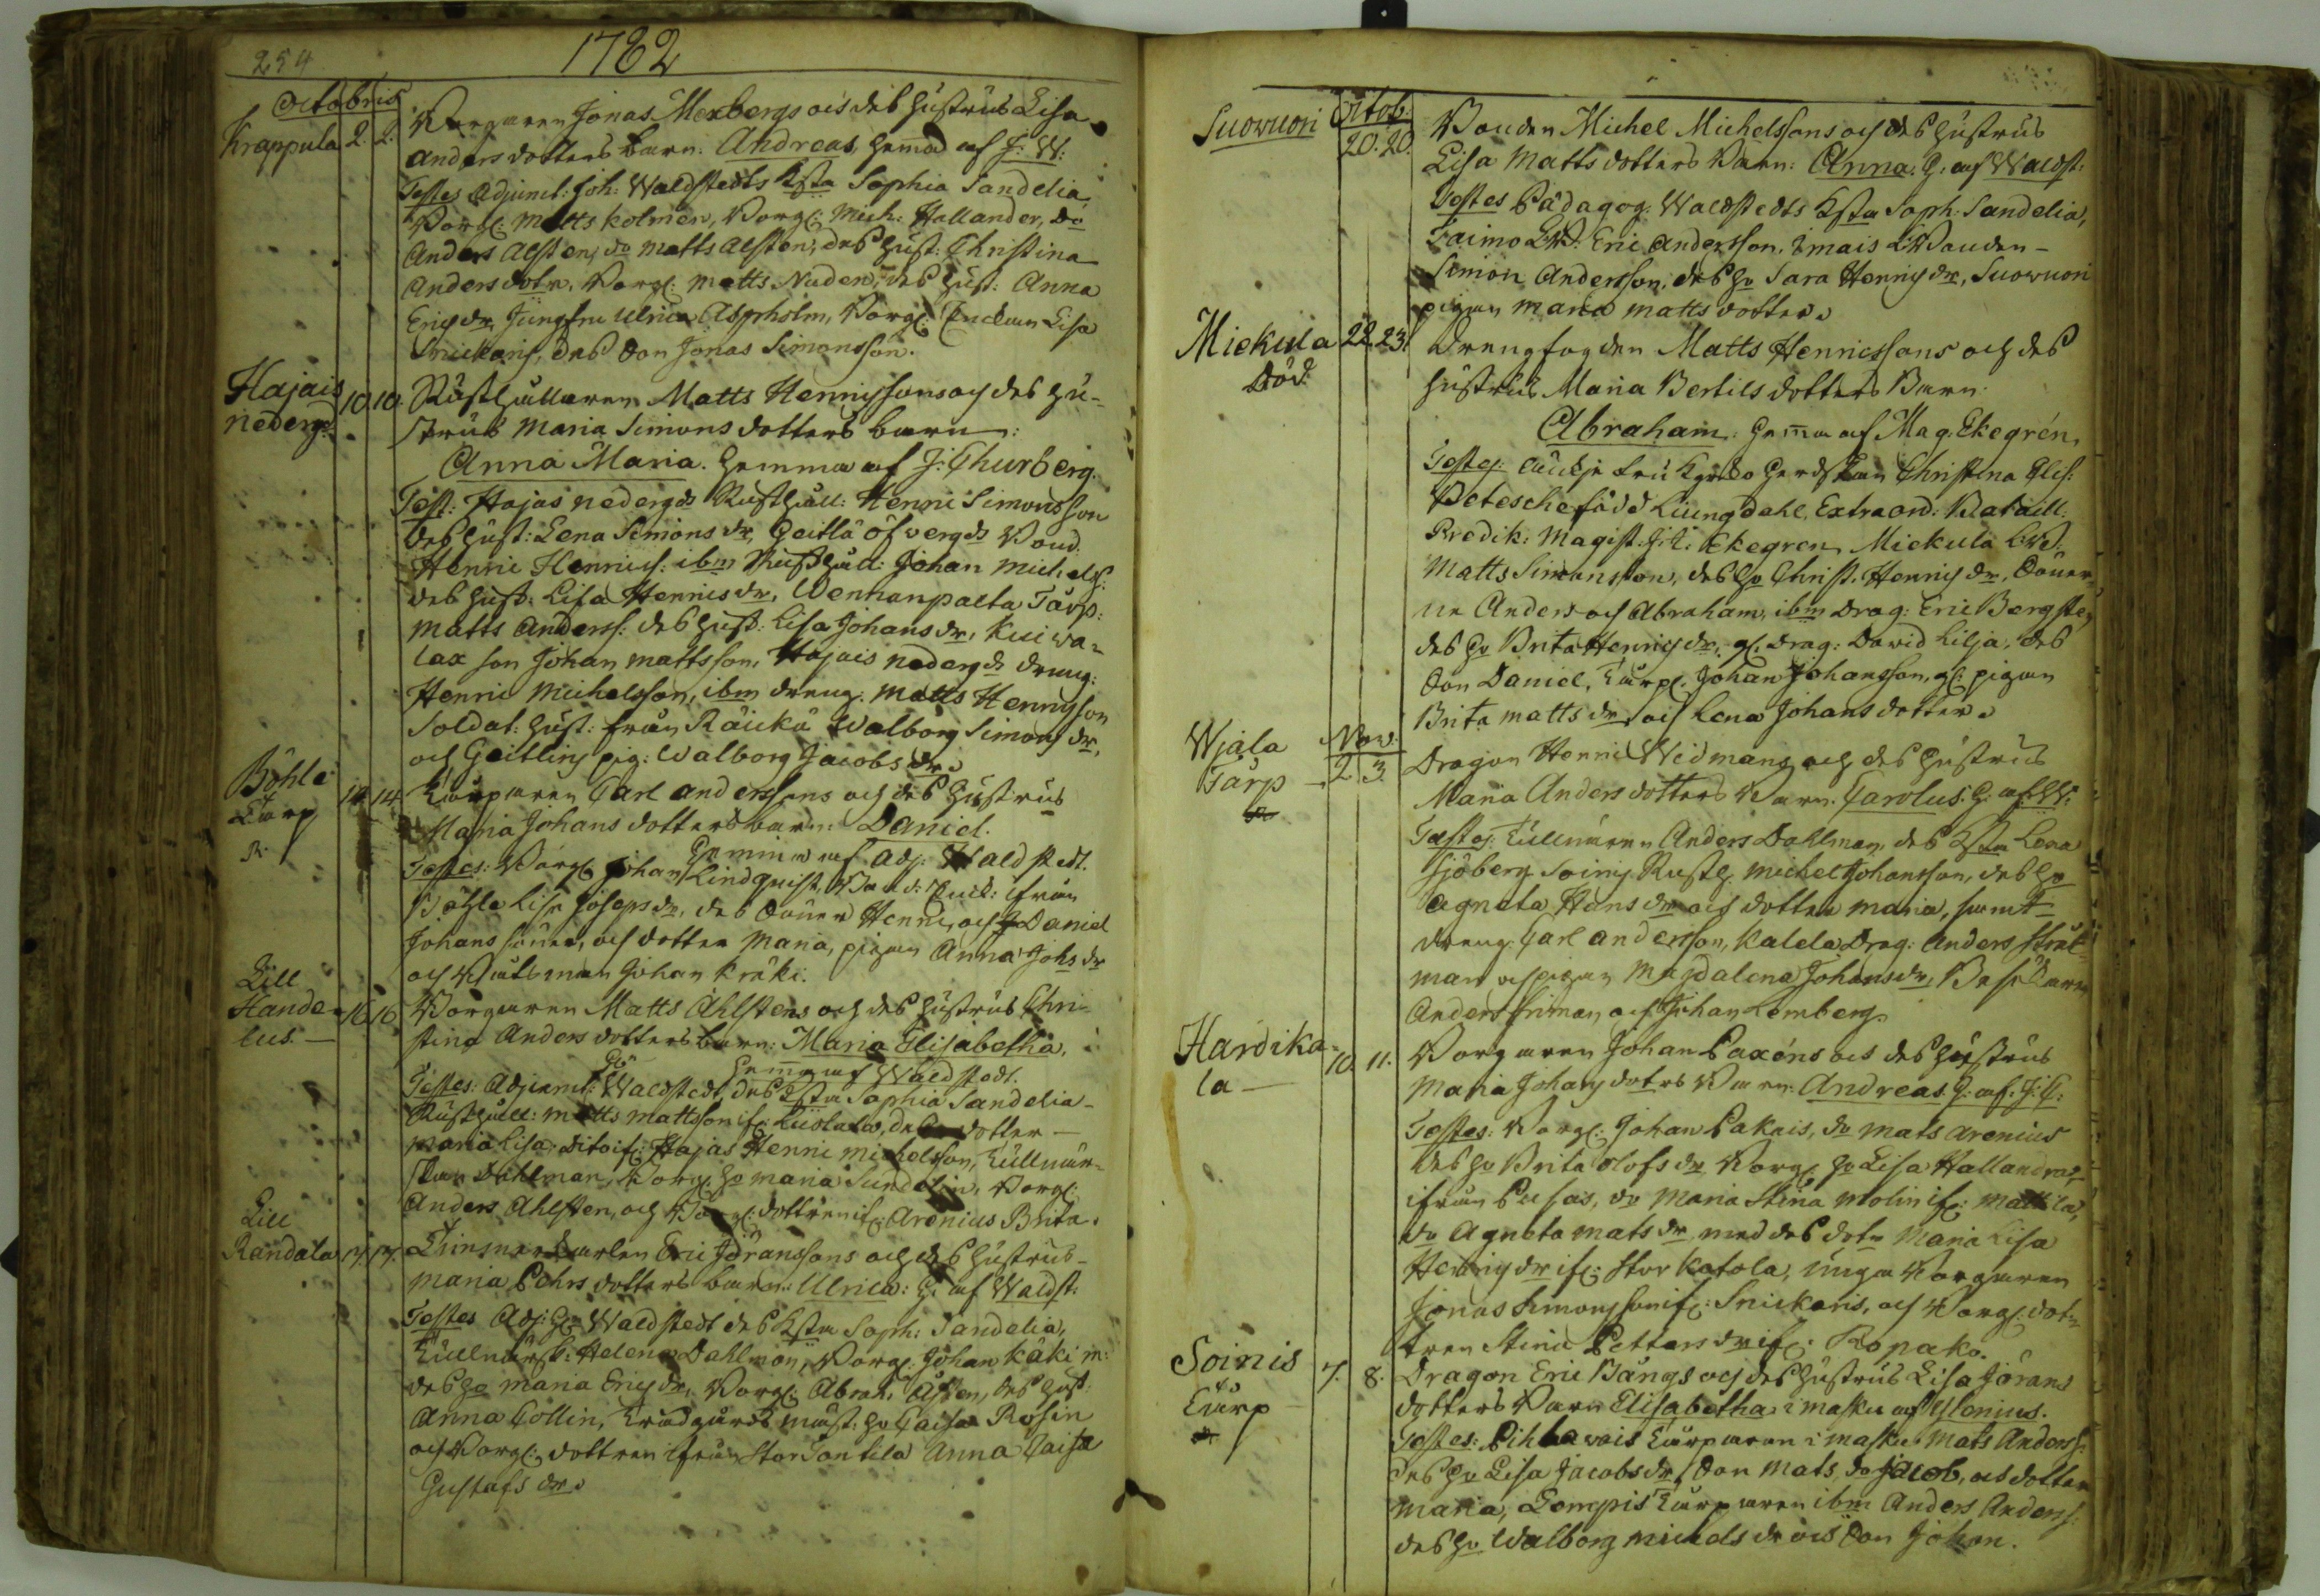 254
1782
Octobris
Krappula 2. 2. Borgaren Jonas Mexbergs och des hustrus Lisa
Anders dotters barn: Andreas, hemmad af J. W:
Testes Adjunct: Joh: Waldstedts Ksta Sophia Sandelia,
Borg: Matts Kolmén, Borg: Mich: Hallander, Do
Anders Alsten, do Matts Alsten, des hust: Christina
Anders dotr, Borg: Matts Nudén, des hust: Anna
Erics dr, Jungfru Ulrica Aspholm, Borg: Enckan Lisa
Snickaris, des Son Jonas Simonsson.
Hajais nederg: 10 10. Rusthållaren Matts Henricssons och des hu-
strus Maria Simons dotters barn:
Anna Maria. hemma af J: Thurberg.
Test: Hajas nedergds Rusthåll: Henric Simonsson
des hust: Lena Simons dr, Geitlä öfvergds Bond
Henric Henrics: ibm Rusthåll: Johan Michels:
des hust: Lisa Henrics dr, Wennanpalta Torp:
Matts Anderss: des hust: Lisa Johans dr, Kuiwa-
lax son Johan Mattsson, Hajais nedergds dreng:
Henric Michelsson, ibm dreng: Matts Henricsson
Soldat: hust: från Räickä Walborg Simons dr,
och Geitlins pig: Walborg Jacobs dr.
Böhle Torp 14 14. Torparen Carl Anderssons och des hustrus
Maria Johans dotters barn: Daniel.
hemma af Adj: Waldstedt.
Testes: Borg: Johan Lindquist, Enck: ifrån
Böhle Lisa Josephs dr, des Söner Henric, och Daniel
Johans söner, och dotter Maria, pigan Anna Johs dr
och Båtsman Johan Kräki.
Lill Handelus. 16 16. Borgaren Matts Ahlstens och des hustrus Chri-
stina Anders dotters barn: Maria Elisabetha,
hemma af Waldstedt.
Testes: Adjunct: Waldstedt, des Ksta Sophia Sandelia-
Rusthåll: Matts Mattsson if: Kustala, des dotter
Maria Lisa, dito if: Hajas Henric Michelsson, Tullnär-
skan Dahlman, Borg: ho Maria Sundelin, Borg:
Anders Ahlsten, och Borg: dottren if: Arenius Brita.
Lill Randala 17. 17. Eric Jöranssons och des hustrus
Maria Pehrs dotters barn: Ulrica: h: af Waldst:
Testes Adj: Waldstedt des Ksta Soph: Sandelia,
Tullnärsk: Helena Dahlman, Borg: Johan Käki m:
des ho Maria Erics dr, Borg: Abrah: Ahlsten, des hust:
Anna Collin, Trädgårds mäst. ho Caisa Rosin
och Borg: dottren ifrån Stor Tontila Anna Caisa
Gustafs dr.
Suowuori Octob. 20. 20. Bonden Michel Michelssons och des hustrus
Lisa Matts dotters Barn: Anna. h: af Waldst:
Testes Pädagog: Waldstedts Ksta Soph: Sandelia,
Taimo Eric Andersson, Imais Bonden
Simon Andersson, des ho Sara Henrics dr, Suowuori
pigan Maria Matts dotter.
Mickula Död. 22. 23. Drengfogden Matts Henricssons och des
hustrus Maria Bertils dotters Barn:
Abraham. hemma af Mag: Ekegrén,
Testes: Christina Elis:
född Liungdahl, Extraord: Bataill:
Predik: Magist: Ekegren, Mickula
Matts Simonsson, des ho Christ. Henrics dr, Söner-
ne Anders och Abraham, ibm Drag: Eric Bergsten
des ho Brita Henrics dr, Drag: David Lilja, des
Son Daniel, Torp: Johan Johansson, pigan
Brita Matts dr och Lena Johans dotter.
Wjala Torp Nov. 2 3. Dragon Henric Widmans och des hustrus
Maria Anders dotters Barn. Carolus. h: af W:
Testes: Tullnären Anders Dahlman, des Ksta Lena
Sjöberg Soinis Rusth: Michel Johansson, des ho
Agneta Hans dr och dotter Maria, samt
dreng: Carl Andersson, Kalela Drag: Anders Stråt-
man och pigan Magdalena Johans dr,
Anders Friman och Johan Lemberg.
Hardikala 10. 11. Borgaren Johan Paxéns och des hustrus
Maria Johans dotrs Barn: Andreas. h: af: J: T:
Testes: Borg: Johan Pakais, do Mats Arenius
des ho Brita Olofs dr, Borg: ho Lisa Hallandra,
ifrån Pusas, do Maria Stina Molin if: Mattila,
do Agneta Mats dr med des dotr Maria Lisa
Henrics dr if: Stor Katola, unga Borgaren
Jonas Simonsson if: Snickaris, och Borg: dot-
tren Stina Petters dr if: Kopako.
Soinis Torp 7. 8. Dragon Eric Bångs och des hustrus Lisa Jörans
dotters Barn Elisabetha i Masku af Ylenius.
Testes: Pihlawais Torparen i Masku Mats Anderss:
des ho Lisa Jacobs dr, Son Mats, do Jacob, och dotter
Maria, Lempis Torparen ibm Anders Anderss:
des ho Walborg Michels dr och Son Johan.